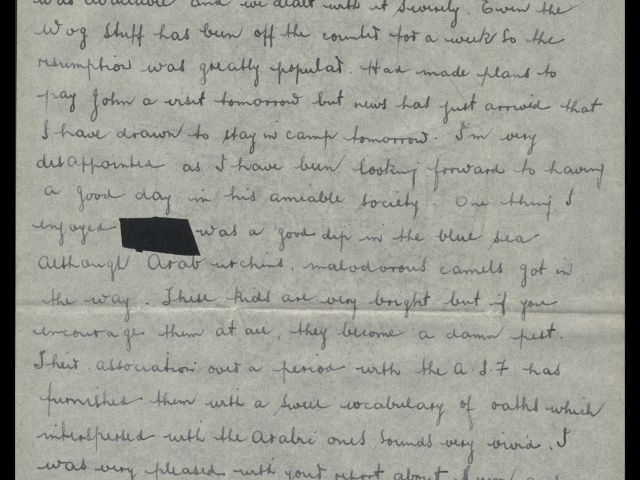 was available and we dealt with it severely. Even the
Wog stuff has been off the counter for a week so the
resumption was greatly popular. Had made plans to
pay John a visit tomorrow but news has just arrived that
I have drawn to stay in camp tomorrow. I'm very
disappointed as I have been looking forward to having
a good day in his amiable society. One thing I
enjoyed was a good dip in the blue sea
although Arab urchins, malodorous camels got in
the way. These kids are very bright but if you
encourage them at all, they become a damn pest.
Their association over a period with the A.I.F has
furnished them with a sweet vocabulary of oaths which
interspersed with the Arabic ones sounds very vivid. I
was very pleased with your report about